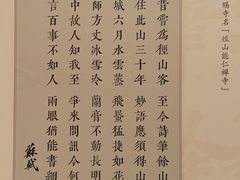 賜寺名『徑山能仁禪寺』
昔嘗為徑山客 至今詩筆餘山
住此山三十年 妙語應須得山
城六月水雲蒸 飛蚊猛捷如花
師方丈冰雪冷 蘭膏不動長明
中故人知我至 爭來問訊今何
言百事不如人 兩眼猶能書細
蘇軾